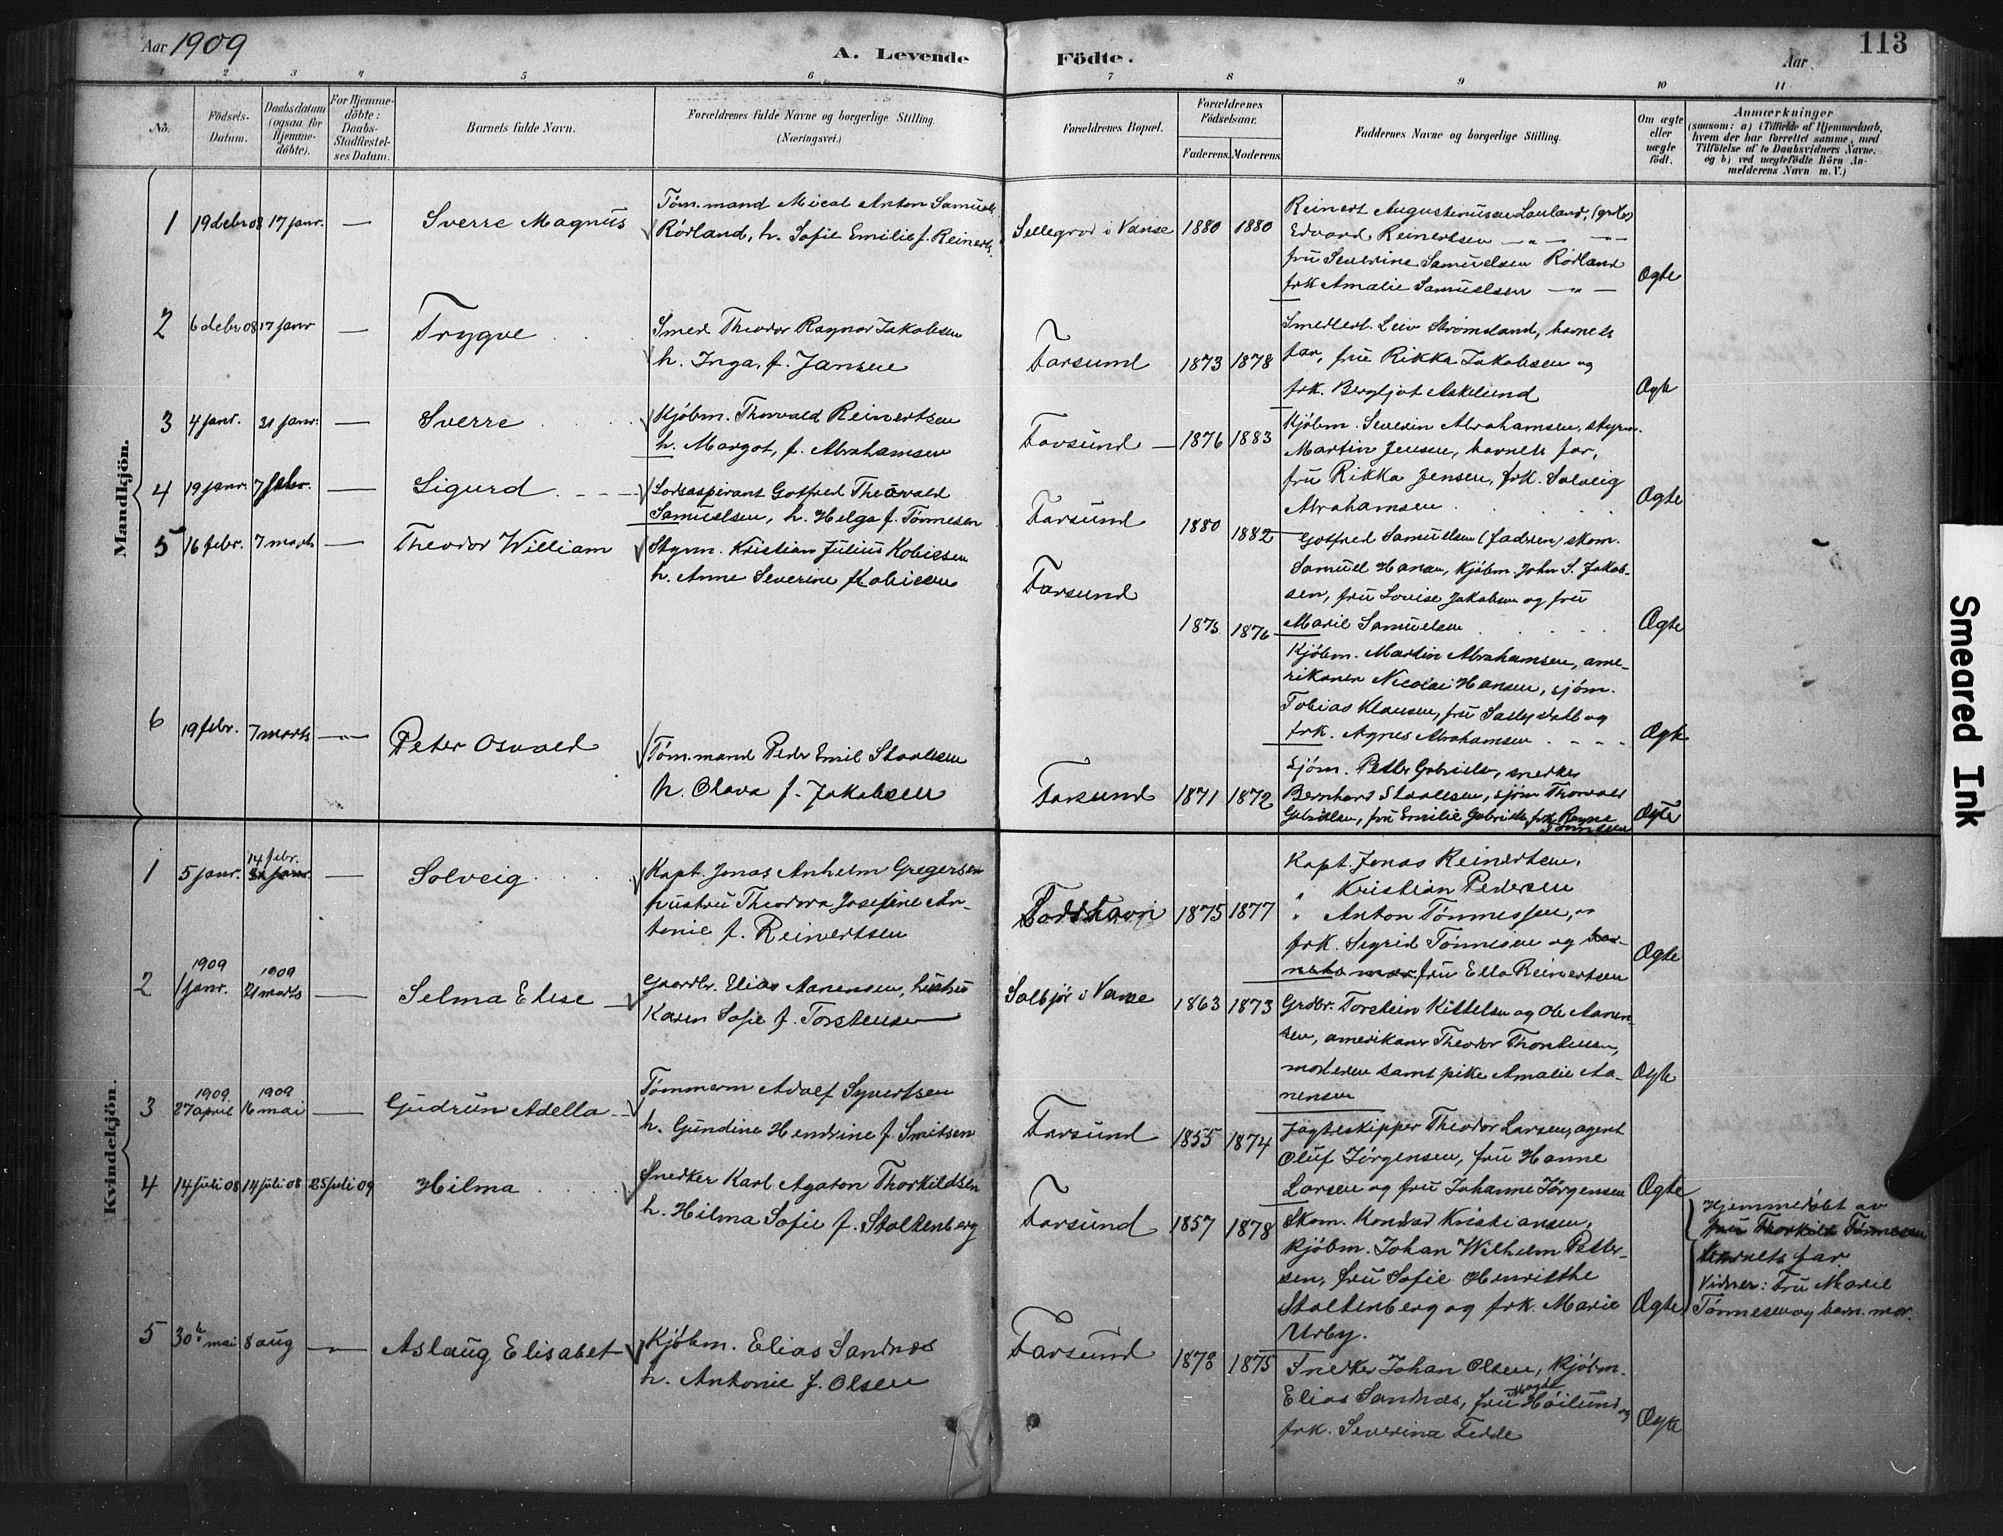 Aar 1909
A. Levende Födte.
Aar
113
1 2 3 4 5 6 7 8 9 10 11
No.
Födsels-Datum.
Daabsdatum (ogsaa for Hjemme-döbte).
For Hjemme-döbte: Daabs-Stadfæstel-ses Datum.
Barnets fulde Navn.
Forældrenes fulde Navne og borgerlige Stilling.
(Næringsvei.)
Forældrenes Bopæl.
Forældrenes Födselsaar.
Faderens. Moderens.
Faddernes Navne og borgerlige Stilling.
Om ægte eller uægte födt.
Anmærkninger
(saasom: a) i Tilfælde af Hjemmedaab, hvem der har forrettet samme, med Tilföielse af to Daabsvidners Navne, og b) ved uægtefödte Börn An-melderens Navn m. V.)
Mandkjön.
1 19 debr 08 17 janr. — Sverre Magnus
Tøm.mand Mical Anton Samuels.
Rørland, h. Sofie Emilie f. Reinerts.
Sellegrod i Vanse 1880 1880
Reinert Augustinusen Lauland, (grdbr)
Edvard Reinertsen — " — —
fru Severine Samuelsen Rørland
frk Amalie Samuelsen — " —
Ægte
2 6 debr 08 17 janr — Trygve
Smed Theodor Ragnar Jakobsen
h. Inga, f. Jansen
Farsund 1873 1878
Smedlerl. Leiv Strømsland, barnets
far, fru Rikka Jakobsen og
frk. Bergljot Askelund
Ægte
3 4 janr. 31 janr. — Sverre
Kjøbm. Thorvald Reinertsen
h. Margot, f. Abrahamsen
Farsund — 1876 1883
Kjøbm. Severin Abrahamsen, styrm.
Martin Jensen, barnets far,
fru Rikka Jensen, frk. Solveig
Abrahamsen
Ægte
4 19 janr. 7 febr. — Sigurd
Lodsaspirant Gotfred Theovald
Samuelsen, h. Helga f. Tønnesen
Farsund 1880 1882
Gotfred Samuelsen (fadren) skom.
Samuel Hansen, Kjøbm. John S. Jakob-
sen, fru Lovise Jakobsen og fru
Marie Samuelsen
Ægte
5 16 febr. 7 marts — Theodor William
Styrm. Kristian Julius Kobiesen
h. Anne Severine f Kobiesen
Farsund 1875 1876
Kjøbm. Martin Abrahamsen, ame-
rikaner Nicolai Hansen, sjøm.
Tobias Klausen, fru Sally Dahl og
frk. Agnes Abrahamsen
Ægte
6 19 febr. 7 marts — Peter Osvald
Tøm.mand Peder Emil Staalesen
h. Olava f. Jakobsen
Farsund 1871 1872
Sjøm. Petter Gabrielsen, snedker
Bernhard Staalesen, sjøm Thorvald
Gabrielsen, fru Emilie Gabrielsen frk. Ragne
Tønnesen
Ægte
Kvindekjön.
1 5 janr. 14 febr. — Solveig
Kapt. Jonas Anhelm Gregersen
hustru Theodora Josefine An-
tonie f. Reinertsen
Lodshavn 1875 1877
Kapt. Jonas Reinertsen,
" Kristian Pedersen
" Anton Tønnessen, "
frk. Sigrid Tønnesen og bar-
nets mor, fru Ella Reinertsen
Ægte
2 1909 1 janr. 1909 21 marts — Selma Elise
Gaardbr. Elias Aanensen, hustru
Karen Sofie f. Torstensen
Salbjør i Vanse 1863 1873
Grdbr. Torstein Kittelsen og Ole Aanen-
sen, amerikaner Theodor Thorstensen,
moderen samt pike Amalie Aa-
nensen
Ægte
3 1909. 27 april 1909 16 mai — Gudrun Adella
Tømmerm Adolf Syvertsen
h. Gundine Hendrine f. Smitsen
Farsund 1855 1874
Jagteskipper Theodor Larsen, agent
Oluf Jørgensen, fru Hanne
Larsen og fru Johanne Jørgensen
Ægte
4 14 juli 08 14 juli 08 25 juli 09 Hilma
Snedker Karl Agaton Thorkildsen
h. Hilma Sofie f. Stoltenberg
Farsund 1857 1878
Skom. Kondrad Kristiansen,
Kjøbm. Johan Wilhelm Petter-
sen, fru Sofie Henriette
Stoltenberg og frk. Marie
Urby.
Ægte
Hjemmedøbt av
fru Thorkild Tønnesen
barnets far
Vidner: Fru Marie
Tønnesen og barn. mor.
5 30 mai 8 aug — Aslaug Elisabet
Kjøbm. Elias Sandnes
h. Antonie f. Olsen
Farsund 1878 1875
Snedker Johan Olsen, Kjøbm.
Elias Sandnes, fru Magda Høilund og
frk. Severina Fedde
Ægte
Smeared Ink